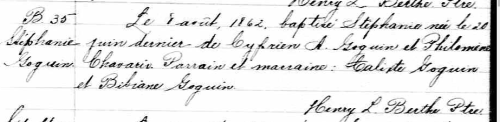 Henry L. Berthe Ptre.
B 35 Le 8 août, 1862, baptisé Stéphanie née le 20
Stéphanie juin dernier de Cyfrien A. Goguin et Philomène
Goguen Chavarie Parrain et marraine: Calixte Goguin
et Bibiane Goguin.
Henry L. Berthe Ptre.